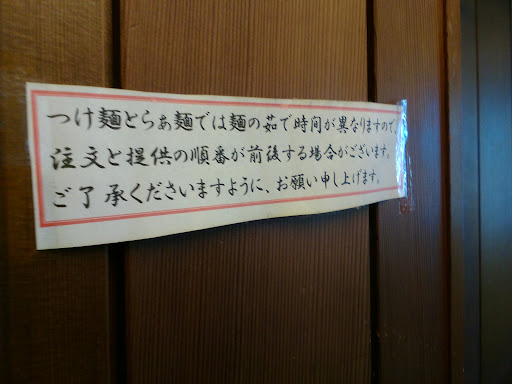 つけ麺とらぁ麺では麺の茹で時間が異なりますので、
注文と提供の順番が前後する場合がございます。
ご了承くださいますように、お願い申し上げます。